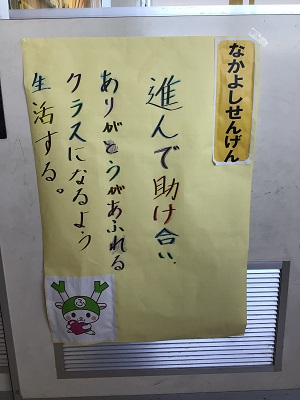 なかよしせんげん
進んで助け合い、
ありがとうがあふれる
クラスになるよう
生活する。